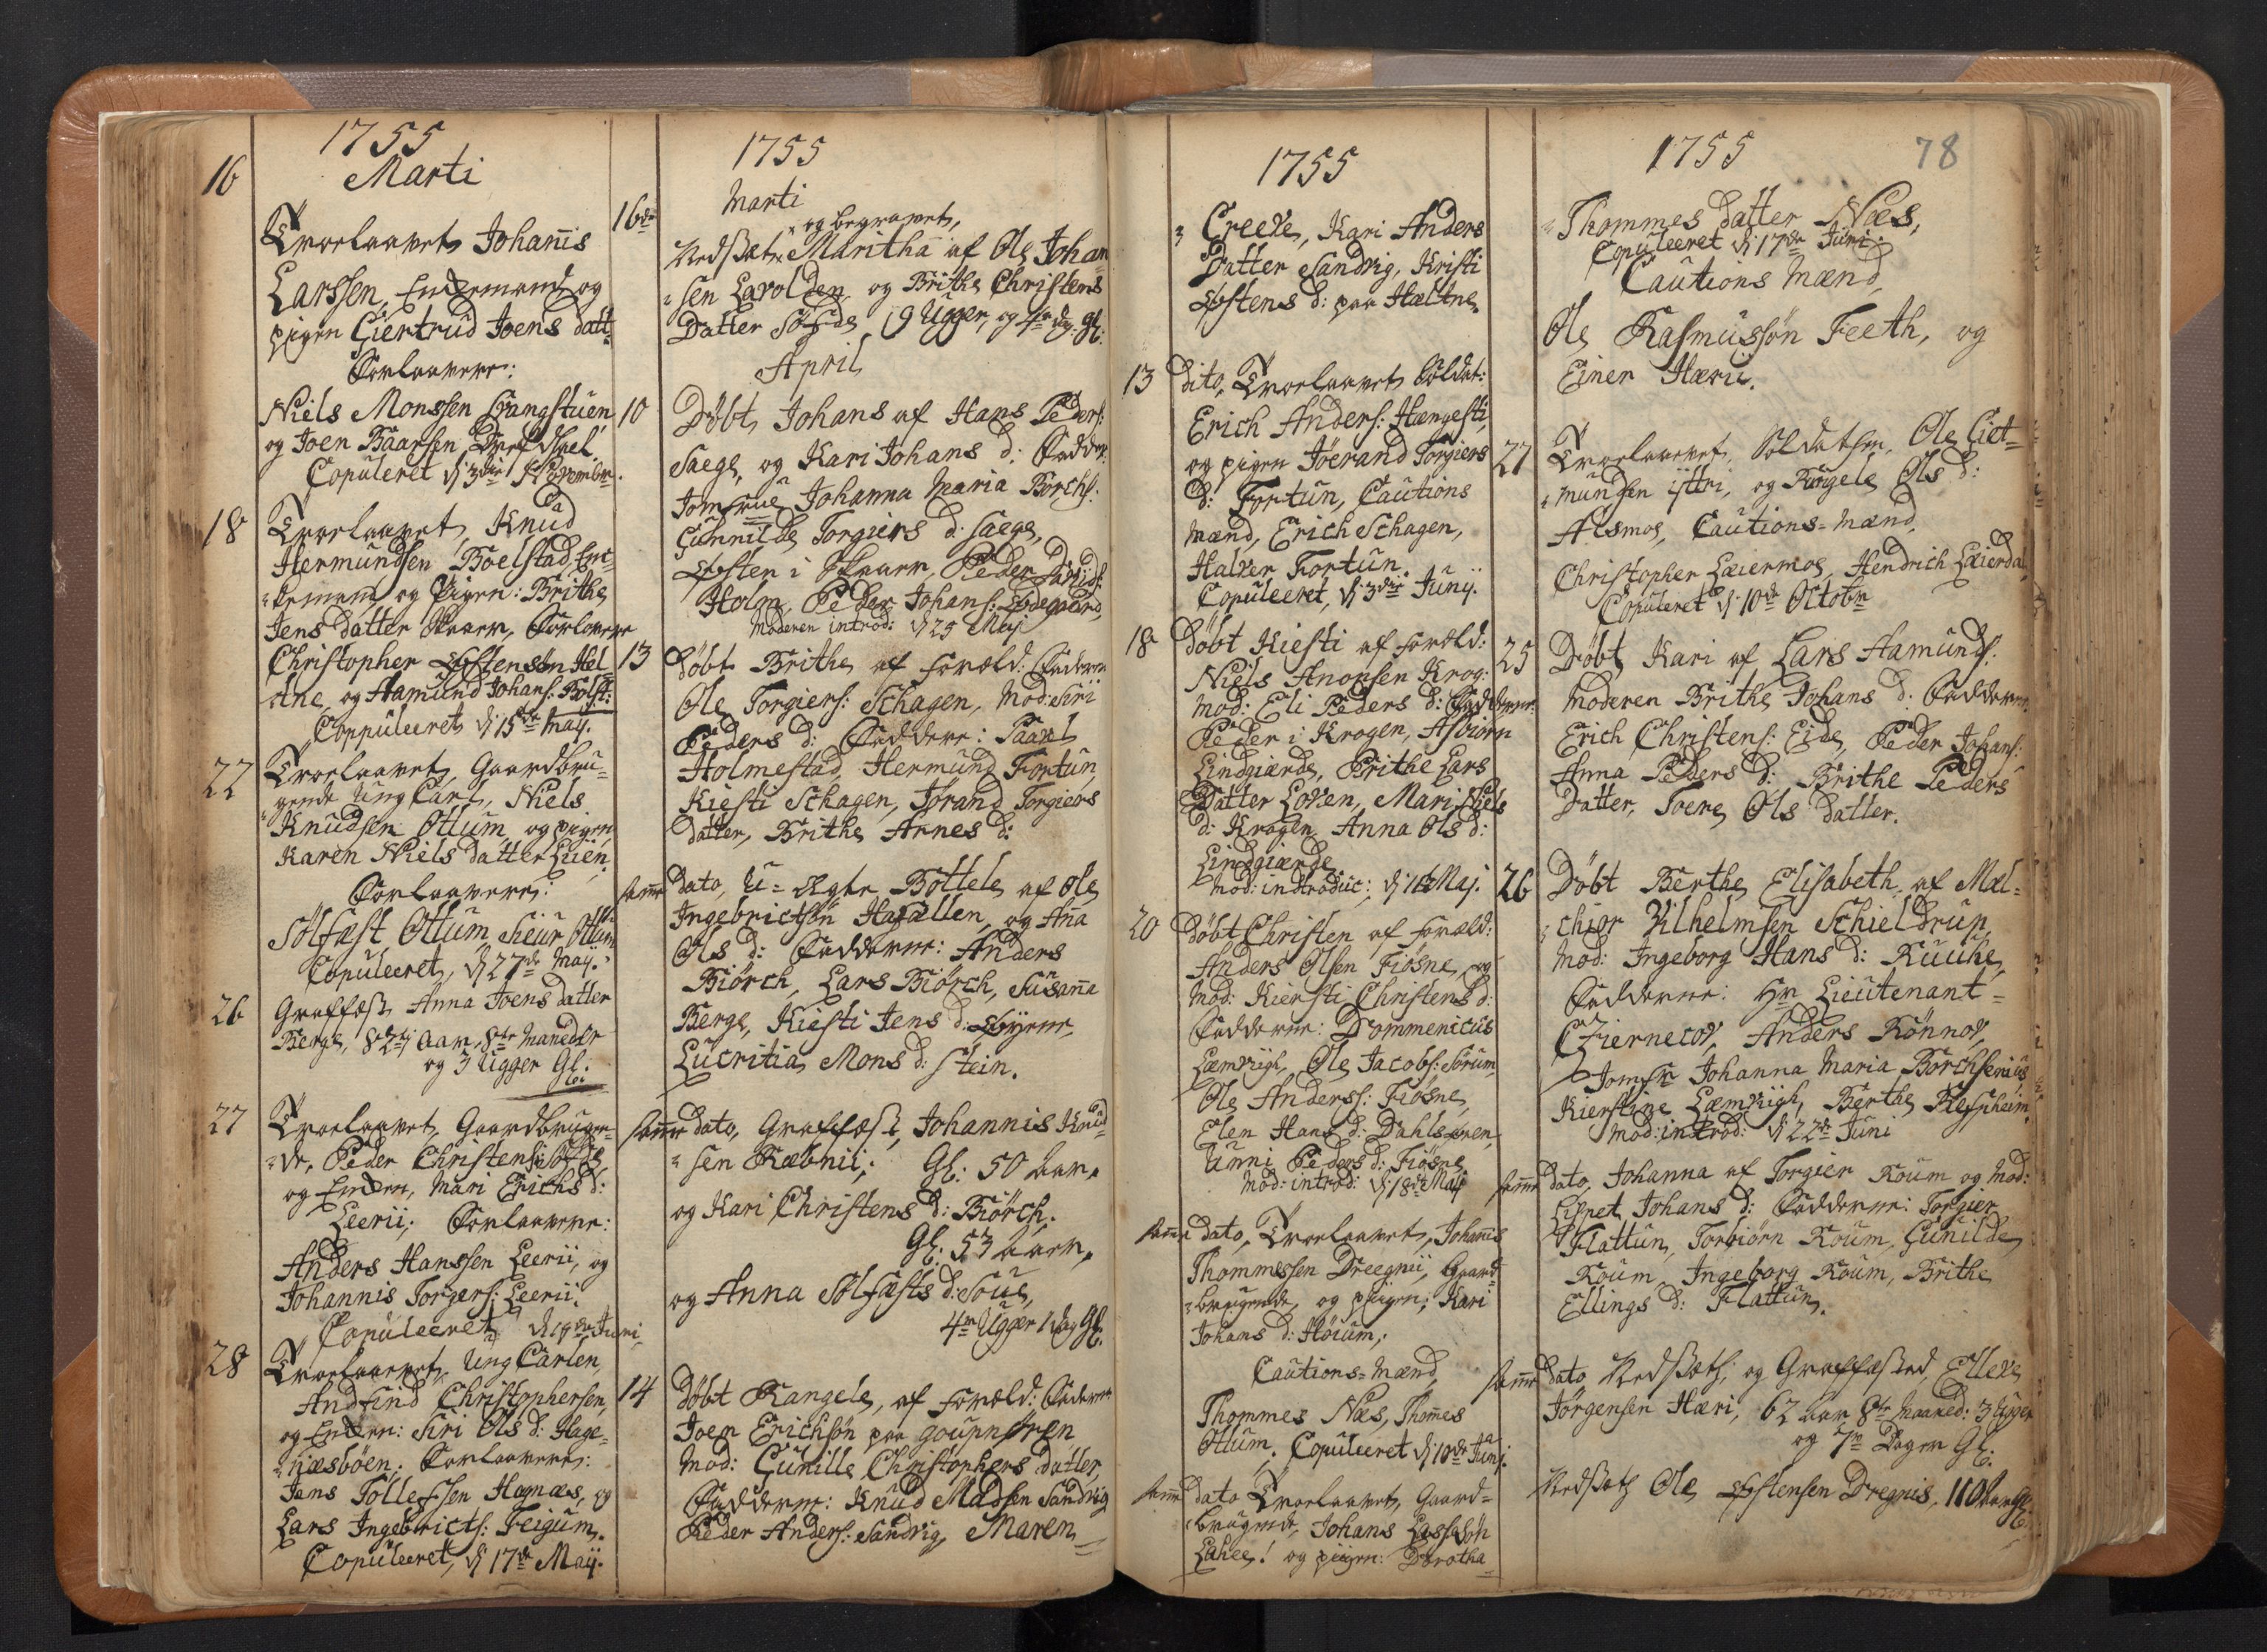 1755
Marti
16
Troelaavet Johanis
Larssen, Enkemand og
pigen Giertrud Joens datt
Forlaavere:
Niels Monssen Krangstuen
og Joen Baarsen
Copuleret d: 3die November.
18 Troelaavet, Knud
Hermundsen Boelstad, Enc-
kemand og Pigen: Brithe
Jens datter Skaar, Forlovere
Christopher Ostensøn Hel
tne, og Aamund Johans: Bolst:
Coppuleeret d: 15de May.
22 Troelaavet, Gaardbru-
gende Ung Carl, Niels
Knudsen Ottum og pigen
Karen Niels datter Lien.
Forlaavere:
Solfæst Ottum Siur Ottum
Copuleeret, d: 27de May.
26 Graffæst Anna Joens datter
Berge, 82 Aar, 8te Maneder
og 3 Ugger Gl.
27 Troelaavet, Gaardbrugen-
de, Peder Christens:
og Enken, Mari Erichs d:
Leerii; Forlaavere:
Anders Hanssen Leerii, og
Johannis Torgers: Leerii.
Copuleeret d: 19de Juni
28 Troelaavet, Ung Carlen,
Andfind Christophersen,
og Enken: Siri Ols d: Hage-
næsbøen; Forlaavere:
Jens Tollefssen Hagnæs, og
Lars Ingebricts: Feigum.
Copuleeret, d: 17de Maij.
1755
Marti
16de og begravet,
Nedsat Maritha af Ole Johan
sen Qvolden og Brithe Christens
Datter 9 Ugger, og 4re dag: gl:
April
10 Døbt, Johans af Hans Peders:
Saege, og Kari Johans d: Fadder:
Jomfrue Johanna Maria Borchs:
Gunnilde Torgiers d: Saege,
Østen i Skaar, Peder Davids:
Holm, Peder Johans: Ødegaard,
Moderen introd: d 25 Maj
13 Døbt Brithe af Foræld: Faderen
Ole Torgiers: Schagen, Mod: Siri
Peders d: Faddere: Paavl
Holmestad, Hermund Fortun,
Kiesti Schagen, Jørand Torgiers
datter, Brithe Arnes d:
Samme dato, U-Ægte Bottele af Ole
Ingebrictsøn Hafællen, og Aña
Ols d: Fadderne: Anders
Biørch, Lars Biørch, Susaña
Berge, Kiesti Jens d:
Lucritia Mons d: Stein.
Samme dato, Graffæst, Johannis Knud
sen Ræbnii; Gl: 50 Aar,
og Kari Christens d: Biørch,
Gl: 53 Aar,
og Anna Solfæsts d:
4re Ugger 1 dag Gl:
14 Døbt Rangele, af Foræld: Faderen
Joen Erichsøn paa Goupnøren
Mod: Gunille Christophers datter,
Fadderne: Knud Madsen Sandvig
Peder Anders: Sandvig, Maren
1755
Creeve, Kari Anders
Datter Sandvig, Kristi
Østens d: paa Hæltne
13 Dito, Troelaavet Soldat:
Erich Anders: Hængesti,
og pigen Jøerand Torgiers
d: Fortun, Cautions
Mænd, Erich Schagen,
Halver Fortun.
Copuleeret, d: 3die Junij.
18 Døbt Kiesti af Foræld:
Niels Anonsen Krog:
Mod: Eli Peders d: Fadderne:
Peder i Krogen, Asbiørn
Lindgiærde, Brithe Lars
Datter Loven, Mari Niels
d: Krogen, Anna Ols d:
Lindgiærde
Mod: introduc: d: Maj.
20 Døbt Christen af Foræld:
Anders Olsen Fiøsne, og
Mod: Kiersti Christens d:
Fadderne: Dommenicus
Læmvigh, Ole Jacobs: Sørum,
Ole Anderss: Fiøsne,
Elen Hans d: Dahlsøren,
Unni Peders d: Fiøsne
Mod: introd: d: 18de Maij
Samme dato, Troelaavet, Johañis
Thommessen Dreegnii, Gaard-
brugende, og piigen; Kari
Johans d: Høium,
Cautions-Mænd,
Thommes Næs, Thomes
Ottum, Copuleeret d: 10de Junj.
Samme dato Troelaavet, Gaard-
brugende, Johans Lassesøn
Lahee! og piigen: Dorotha
1755 78
Thommes datter Næs,
Copuleeret d: 17de Juni.
Cautions Mænd,
Ole Rasmussøn Feeth, og
Einer Hærii.
27 Troelaavet, Soldaten, Ole
mundsen og Rangele Ols d:
Aasmoe, Cautions-mænd,
Christopher Læiermoe, Hendrich Læierdal
Copuleret d: 10de Octobr
25 Døbt Kari af Lars Aamunds.
Moderen Brithe Johans d: Fadderne.
Erich Christens: Eide, Peder Johans:
Anna Peders d: Brithe Peders
Datter, Toere Ols datter.
26 Døbt Berthe Elisabeth af Mæl-
chior Vilhelmsen Schieldrup,
Mod: Ingeborg Hans d: Kuuhe,
Fadderne: Hr Lieutenant
Cziernecov, Anders Rønnov,
Jomfr Johanna Maria Borchsenius
Kierstine Læmvigh, Berthe
Mod: introd: d: 22de Juni
Samme dato, Johanna af Torgier Roum og Mod:
Lispet Johans d: Fadderne: Torgier
Flattun, Torbiørn Roum, Gunilde
Roum, Ingeborg Roum, Brithe
Ellings d: Flattun.
Samme dato Nedsath; og Graffæsted, Elleve
Jørgensen Hæri, 62 Aar 8te Maaned: 3 Ugger
og 7ve Dager Gl:
Nedsath Ole Østensen Dregnis, 110 Aar Gl: